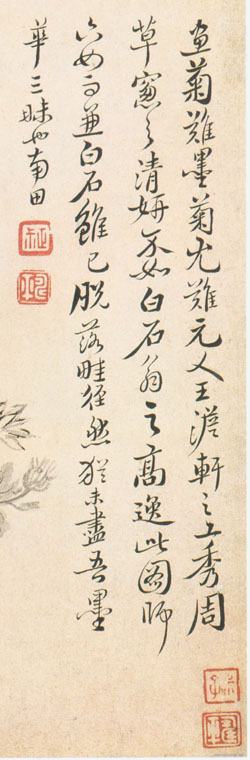 画菊難墨菊尤難元人王澹軒之工秀周
草窻之清妍不如白石翁之高逸此圖師
六如而兼白石雖已脫落畦徑然猶未盡吾墨
華三昧也南田